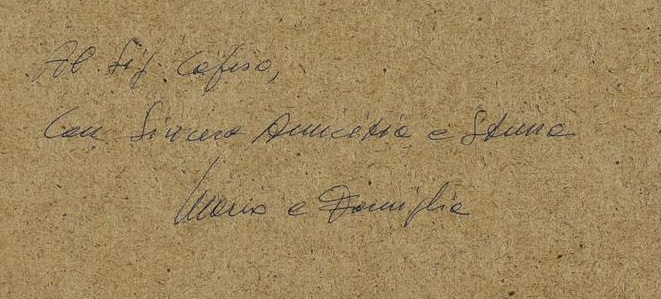 Al Sig. Cafiso,
Con Sincera Amicizia e Stima
Mario e Famiglia